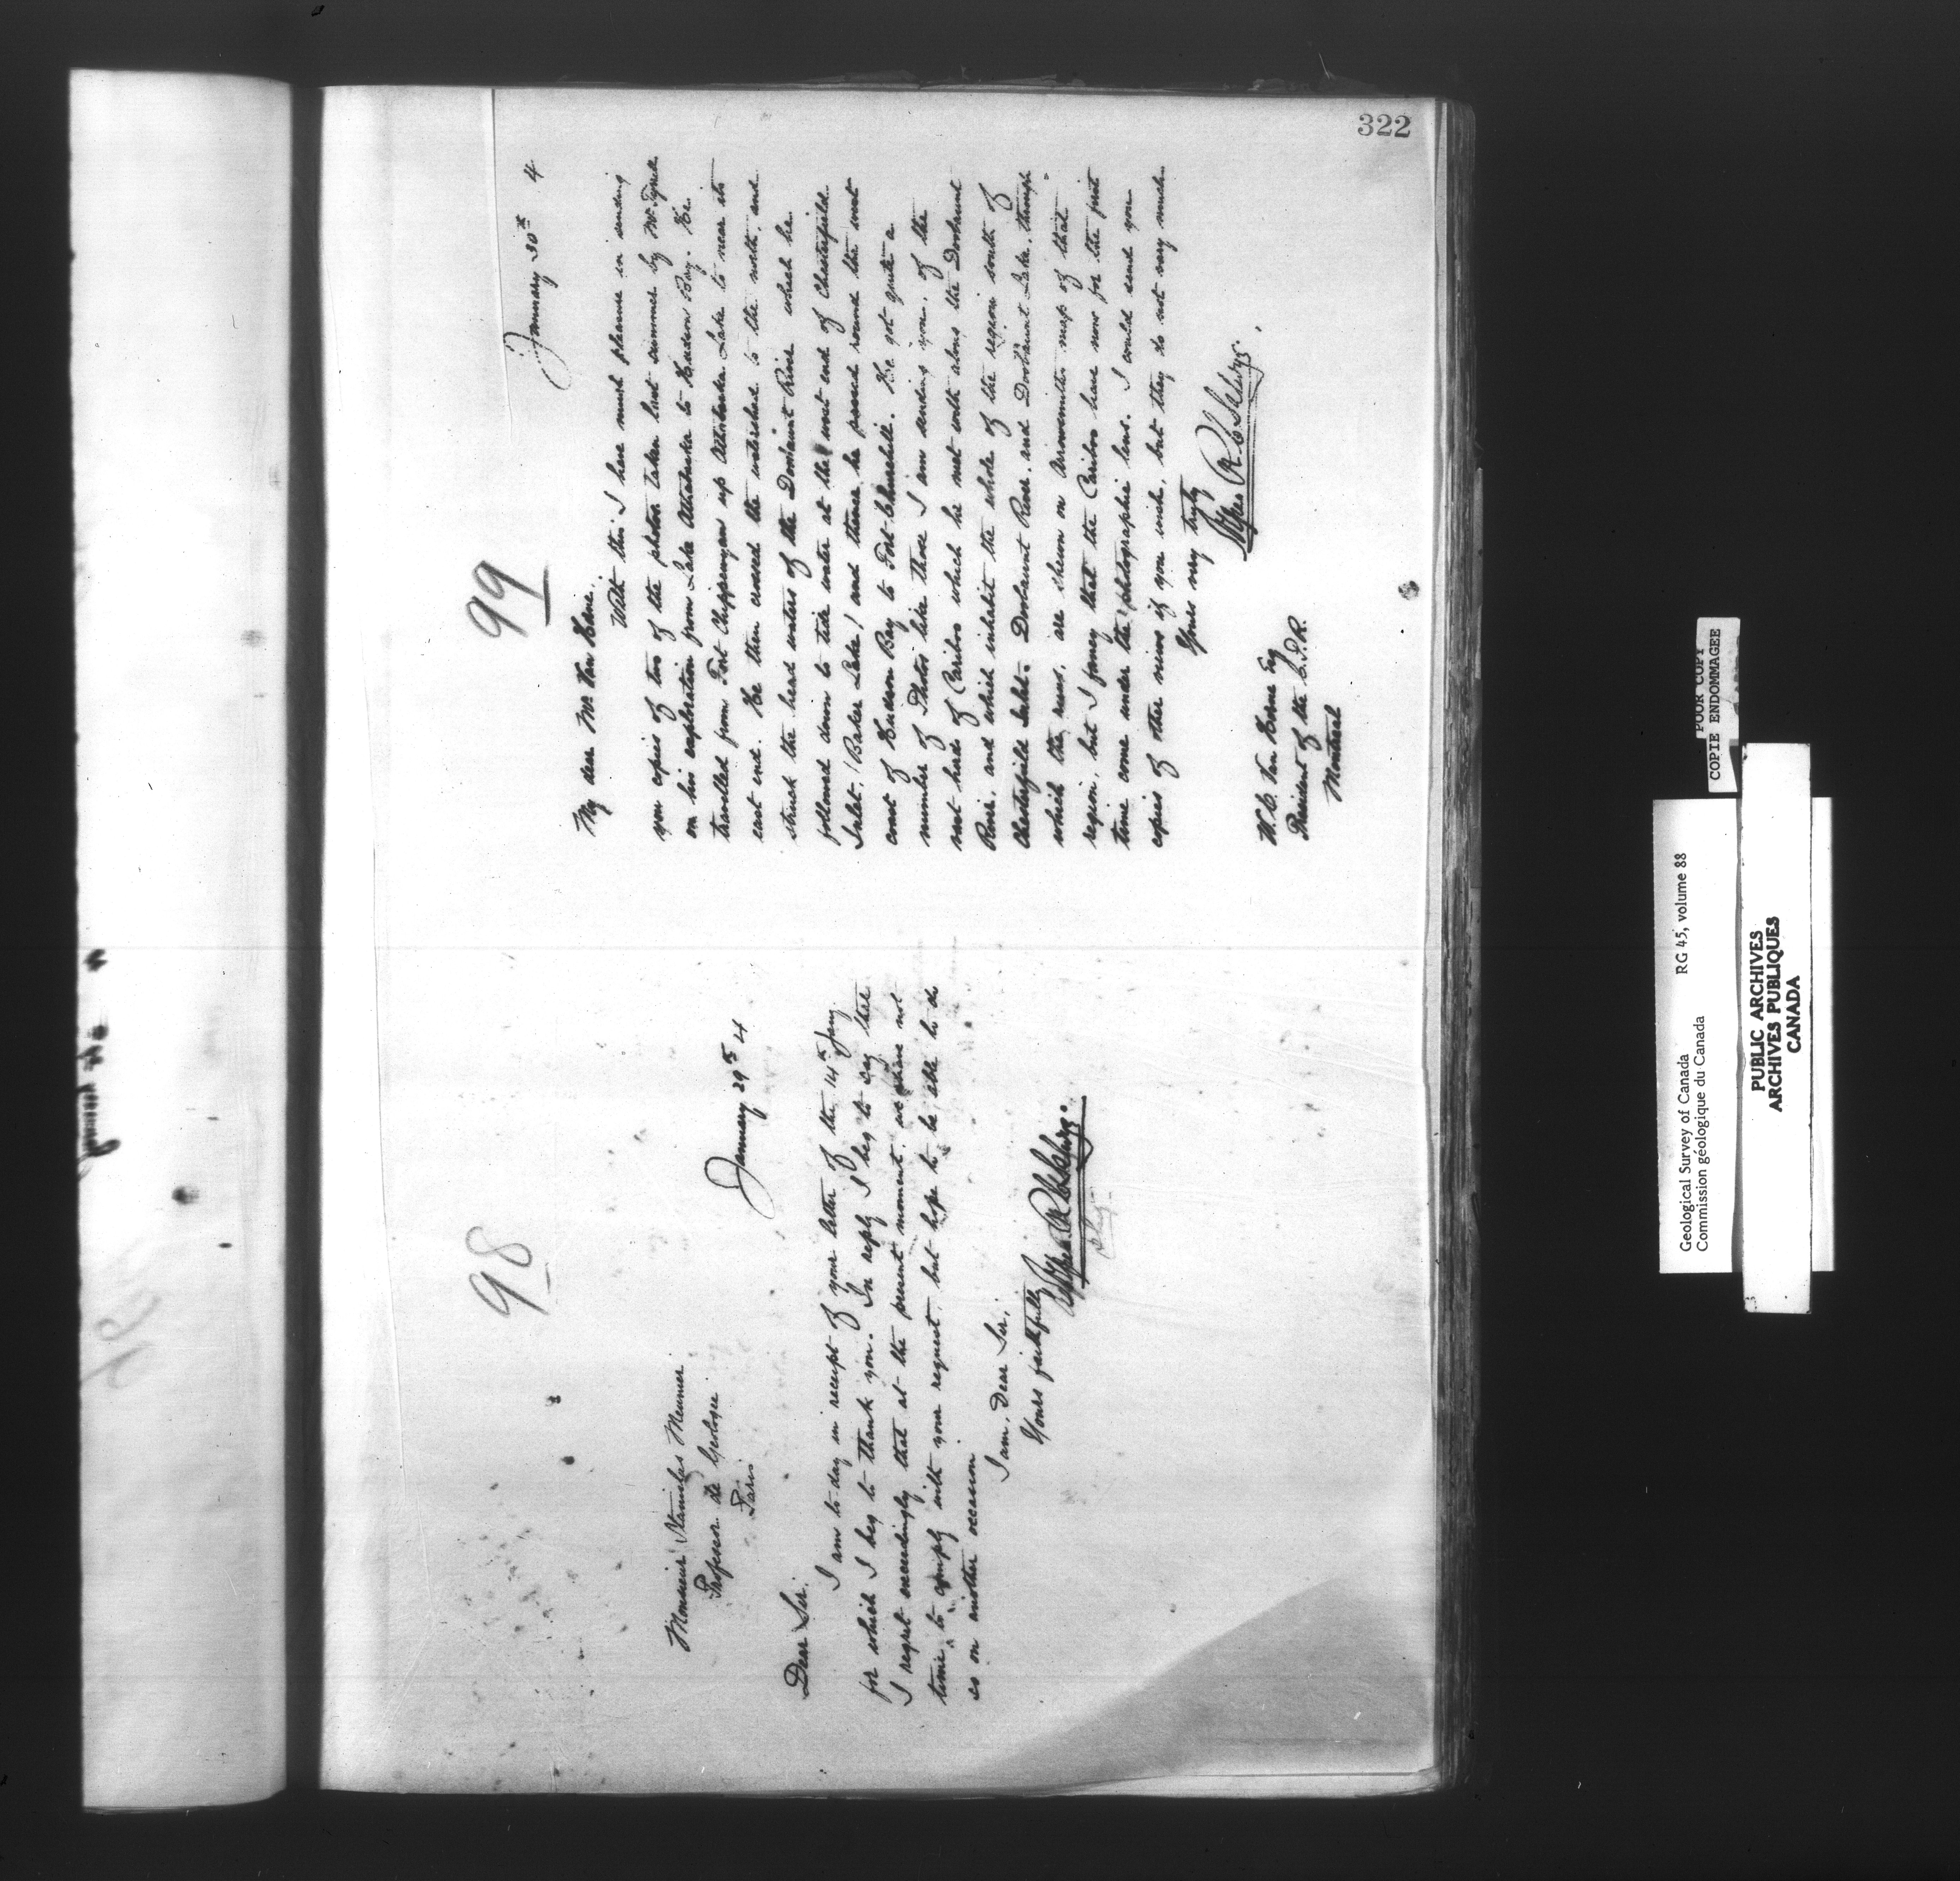 322
98
January 29th 4
Monsieur Stanislas Meunier
Professor de Geologie
Paris
Dear Sir.
I am to-day in receipt of your letter of the 14th Jany
for which I beg to thank you. In reply I beg to say that
I regret exceedingly that at the present moment, we have not
time, to comply with your request, but hope to be able to do
so on another occasion
I am, Dear Sir,
Yours faithfully
Alfred R C Selwyn.
99
January 30th 4
My dear Mr Van Horne.
With this I have much pleasure in sending
you copies of two of the photos taken last summer by Mr Tyrrell
on his exploration from Lake Athabaska to Hudson Bay. He
travelled from Fort Chippewyan up Athabaska Lake to near its
east end. He then crossed the watershed to the north, and
struck the head waters of the Doobaunt River which he
followed down to tide water at the west end of Chesterfield
Inlet, (Baker Lake) and thence he passed round the west
coast of Hudson Bay to Fort Churchill. He got quite a
number of Photos like those I am sending you, of the
vast herds of Caribou which he met with along the Doobaunt
River, and which inhabit the whole of the region south of
Chesterfield Inlet. Doobaunt River, and Doobaunt Lake, through
which the runs, are shewn on Arrowsmiths map of that
region, but I fancy that the Caribou have now for the first
time come under the photographic lens. I could send you
copies of other views if you wish, but they do not vary much.
Yours very truly
Alfred R C Selwyn.
W. C. Van Horne Esq
President of the C.P.R.
Montreal
POOR COPY
COPIE ENDOMMAGEE
Geological Survey of Canada RG 45, volume 88
Commission géologique du Canada
PUBLIC ARCHIVES
ARCHIVES PUBLIQUES
CANADA